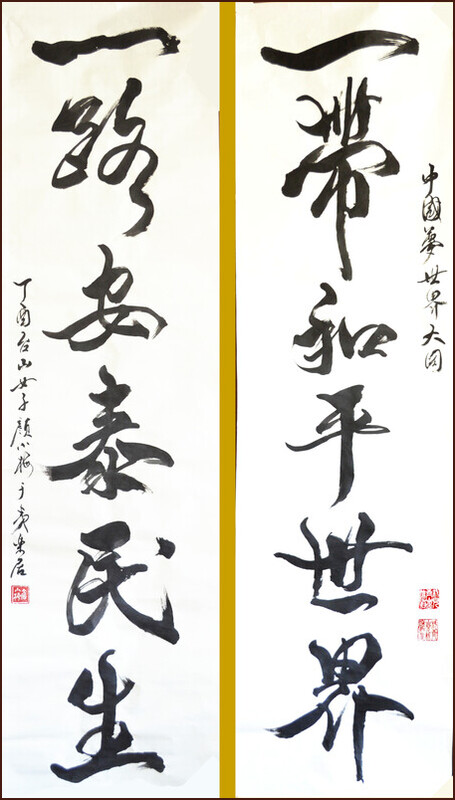 中國夢世界大同
一帶和平世界
一路安泰民生
丁酉台山女子顏小梅于